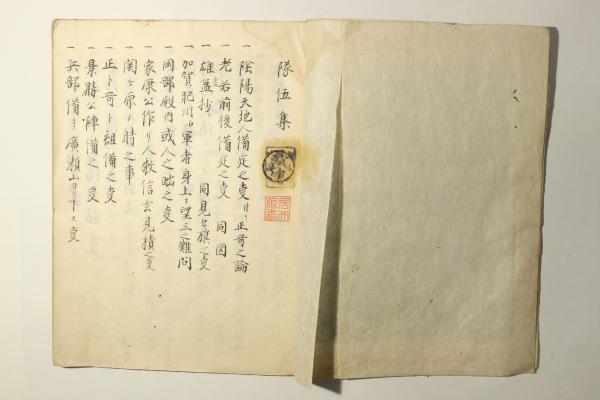 隊伍集
一 陰陽天地人備定之事 付り 正奇之論
一 老若前後備定之事 同図
一 雄益抄 同見セ旗之事
一 加賀肥州 軍者身上ヲ望三之難問
一 岡部殿内或人之咄之事
一 家康公作リ人数信玄見積之事
一 関ヶ原ノ時之事
一 正ト奇ト組備之事
一 景勝公陣備之事
一 兵部備ヲ廣瀬山 下ス事